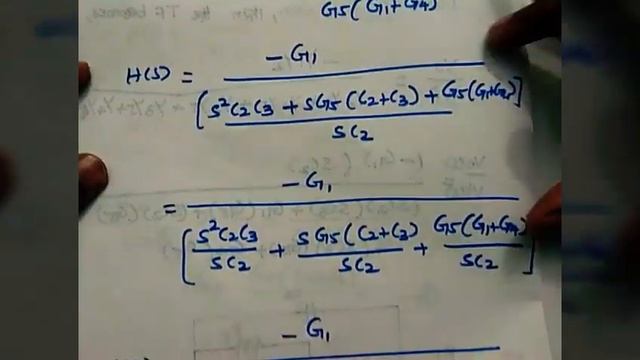 G5(G1+G4)
H(s) = -G1
[s²C2C3 + sG5(C2+C3) + G5(G1+G4)]
sC2
= -G1
[s²C2C3/sC2 + sG5(C2+C3)/sC2 + G5(G1+G4)/sC2]
-G1